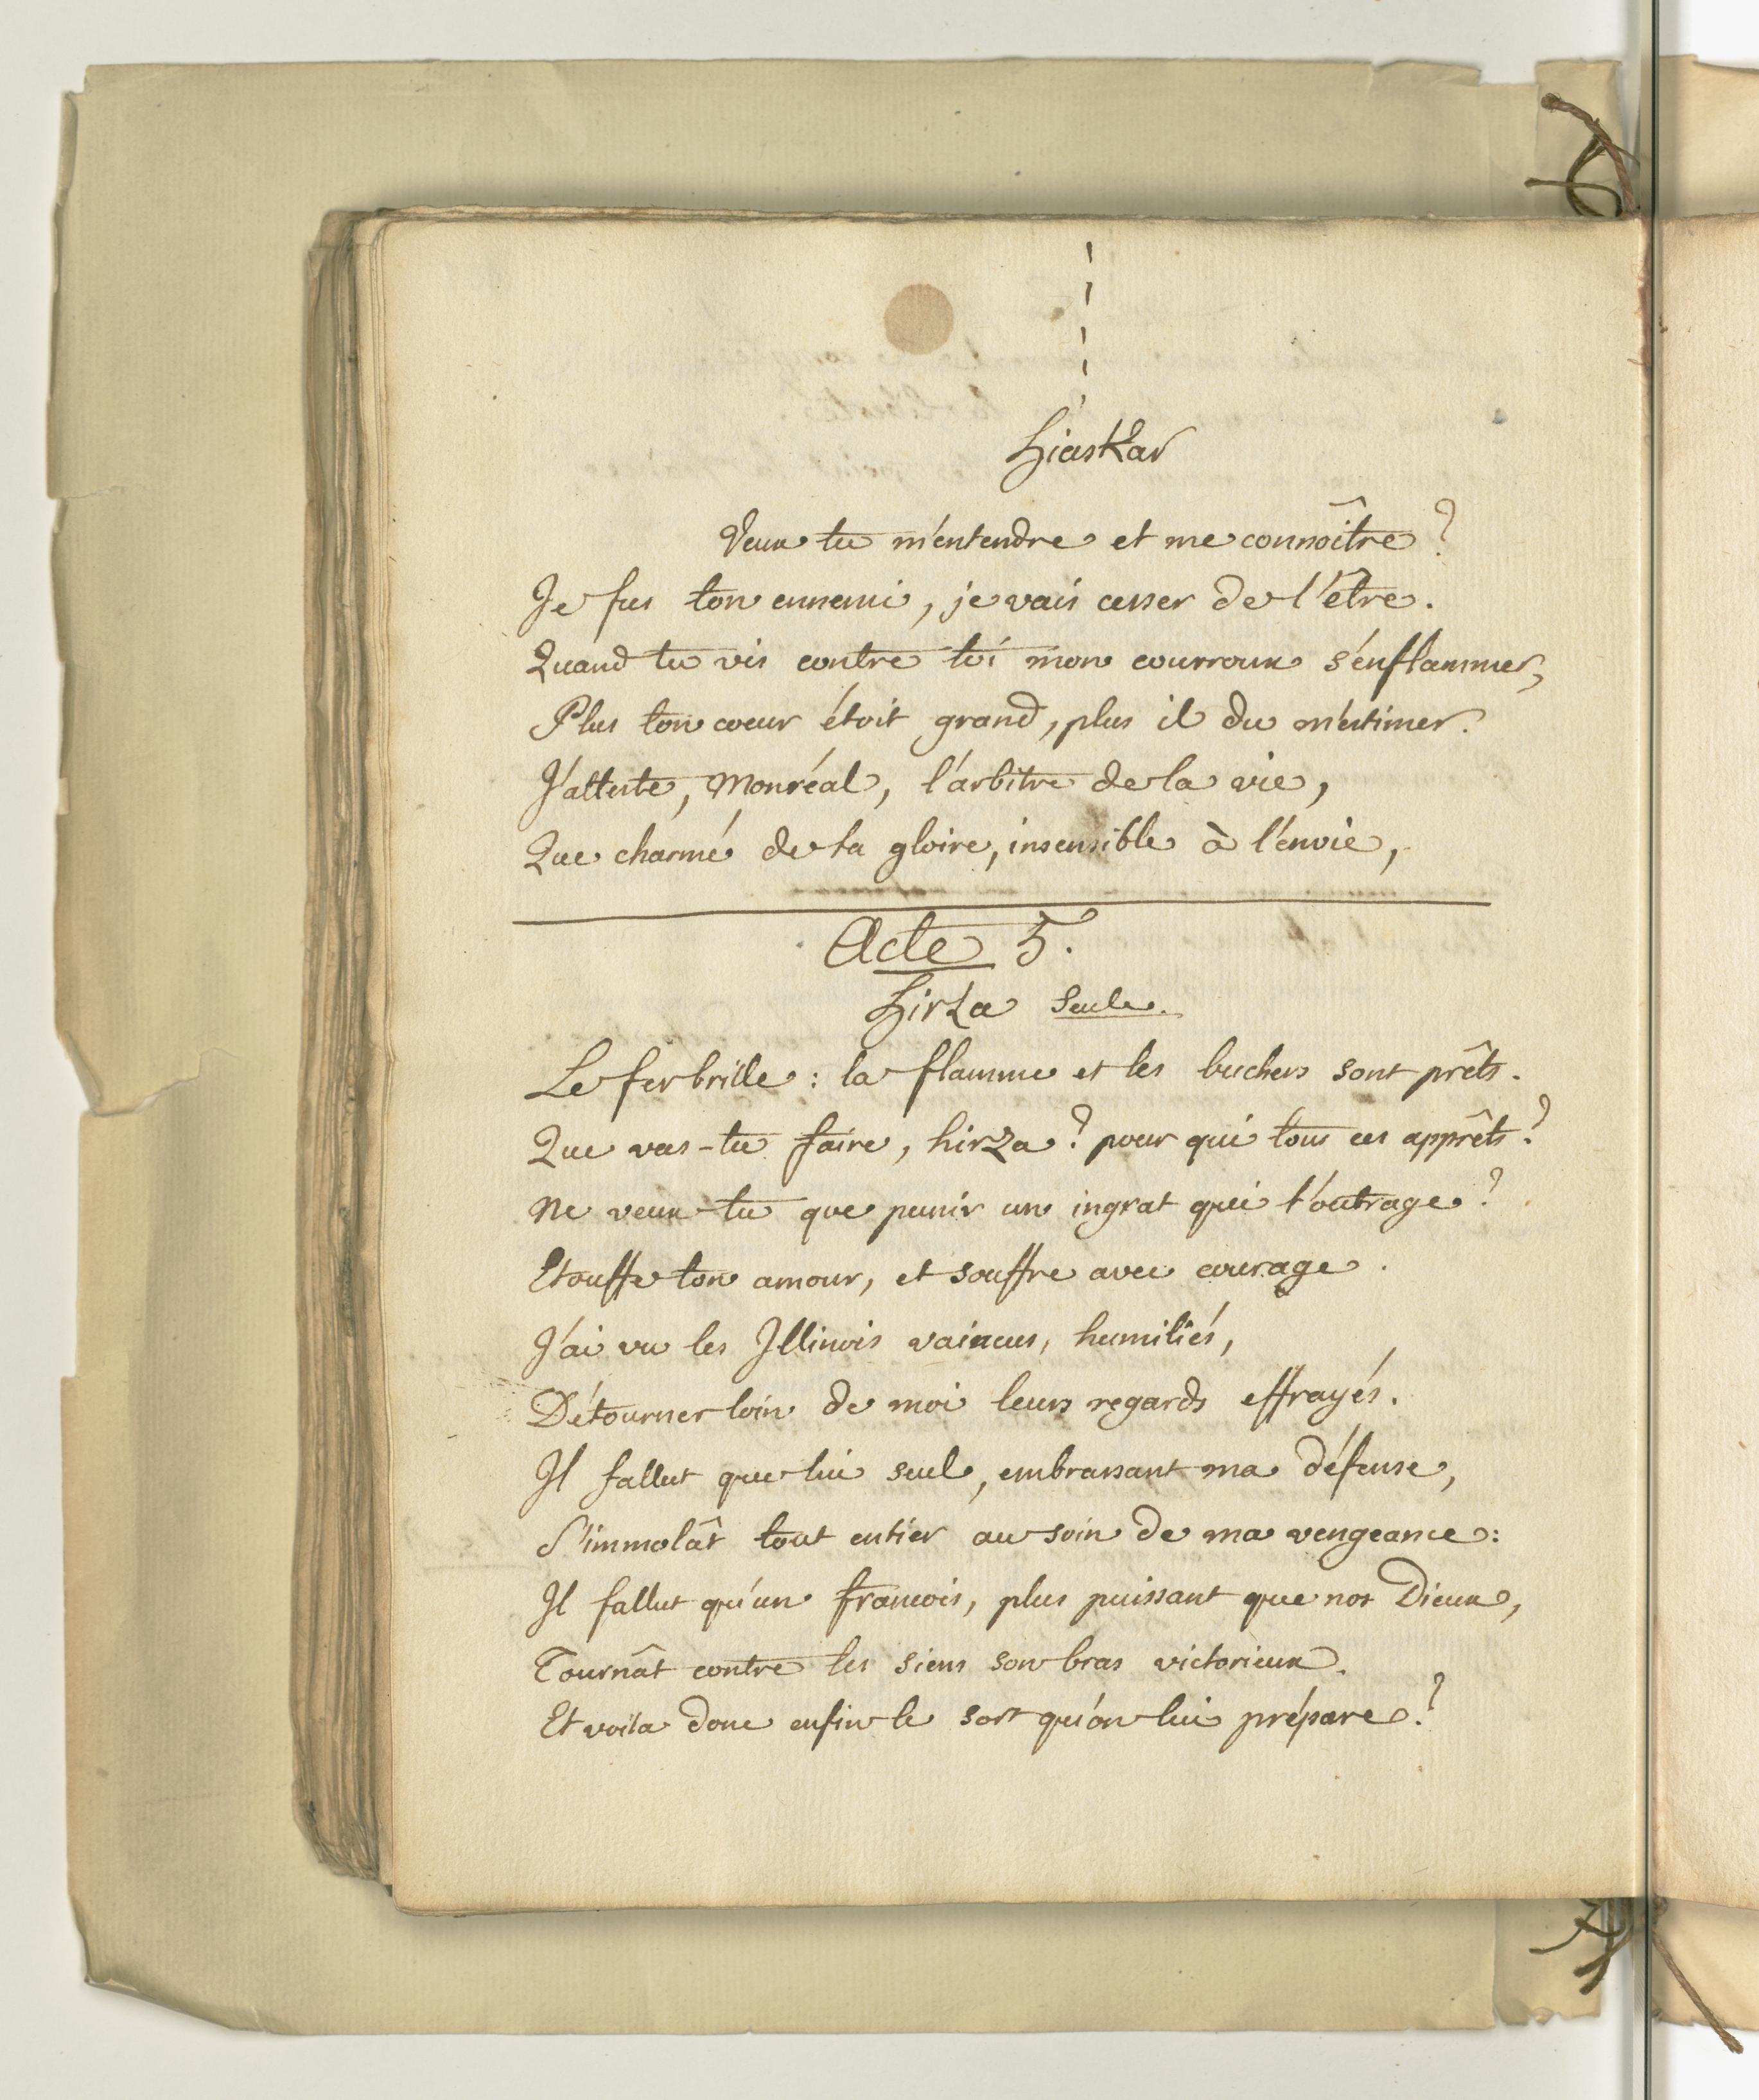 hiaskar
Veux tu m'entendre et me connoître?
Je fus ton ennemi, je vais cesser de l'être.
Quand tu vis contre toi mon courroux s'enflammer,
Plus ton coeur étoit grand, plus il du m'estimer.
J'atteste, Monréal, l'arbitre de la vie,
Que charmé de ta gloire, insensible à l'envie,
Acte 5.
hirza seule.
Le fer brille: la flamme et les buchers sont prêts.
Que vas-tu faire, hirza? pour qui tous ces apprêts?
Ne veux-tu que punir un ingrat qui t'outrage?
Etouffe ton amour, et souffre avec courage.
J'ai vu les Illinois vaincus, humiliés,
Détourner loin de moi leurs regards effrayés.
Il fallut que lui seul, embrassant ma défense,
S'immolât tout entier au soin de ma vengeance:
Il fallut qu'un francois, plus puissant que nos Dieux,
Tournât contre les siens son bras victorieux.
Et voila donc enfin le sort qu'on lui prépare?